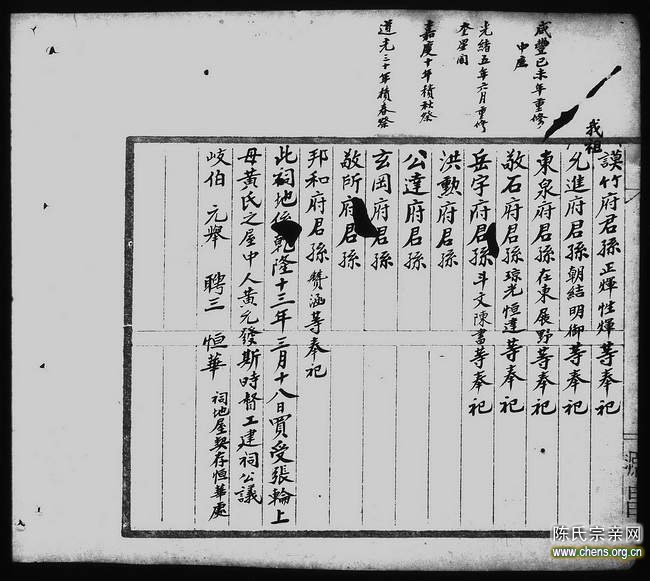 咸豐已未年重修
中座
光緒五年六月重修
奎星閣
嘉慶十年積社祭
道光三十年積春祭
我祖
謨竹府君孫正輝性煇等奉祀
允進府君孫朝結明御等奉祀
東泉府君孫在東展野等奉祀
敬石府君孫琼光恒達等奉祀
岳宇府君孫斗文陳書等奉祀
洪勲府君孫
公達府君孫
玄岡府君孫
敬所府君孫
邦和府君孫贊涵等奉祀
此祠地係乾隆十三年三月十八日買受張輪上
母黃氏之屋中人黃元發斯時督工建祠公議
岐伯 元舉 聘三 恒華 祠地屋契存恒華處
陈氏宗亲网
www.chens.org.cn